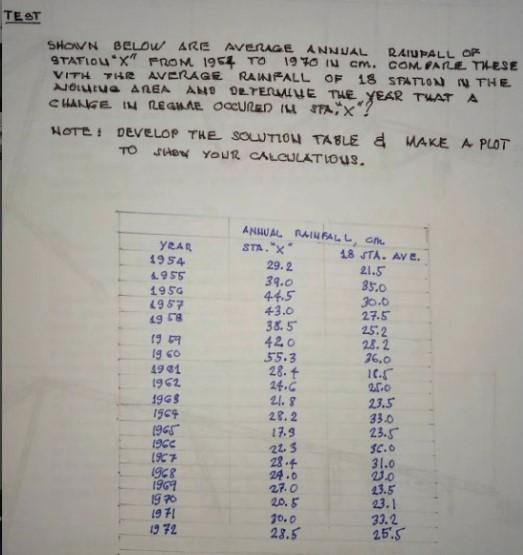 TEST
SHOWN BELOW ARE AVERAGE ANNUAL RAINFALL OF
STATION "X" FROM 1954 TO 1970 IN cm. COMPARE THESE
WITH THE AVERAGE RAINFALL OF 18 STATION IN THE
AJOINING AREA AND DETERMINE THE YEAR THAT A
CHANGE IN REGIME OCCURED IN STA. "X"?
NOTE: DEVELOP THE SOLUTION TABLE & MAKE A PLOT
TO SHOW YOUR CALCULATIONS.
ANNUAL RAINFALL, cm
YEAR STA. "X" 18 STA. AVE.
1954 29.2 21.5
1955 39.0 35.0
1956 44.5 30.0
1957 43.0 27.5
1958 38.5 25.2
1959 42.0 28.2
1960 55.3 36.0
1961 28.4 18.5
1962 24.6 25.0
1963 21.8 23.5
1964 28.2 33.0
1965 17.9 23.5
1966 22.3 36.0
1967 28.4 31.0
1968 24.0 23.0
1969 27.0 23.5
1970 20.5 23.1
1971 30.0 33.2
1972 28.5 25.5